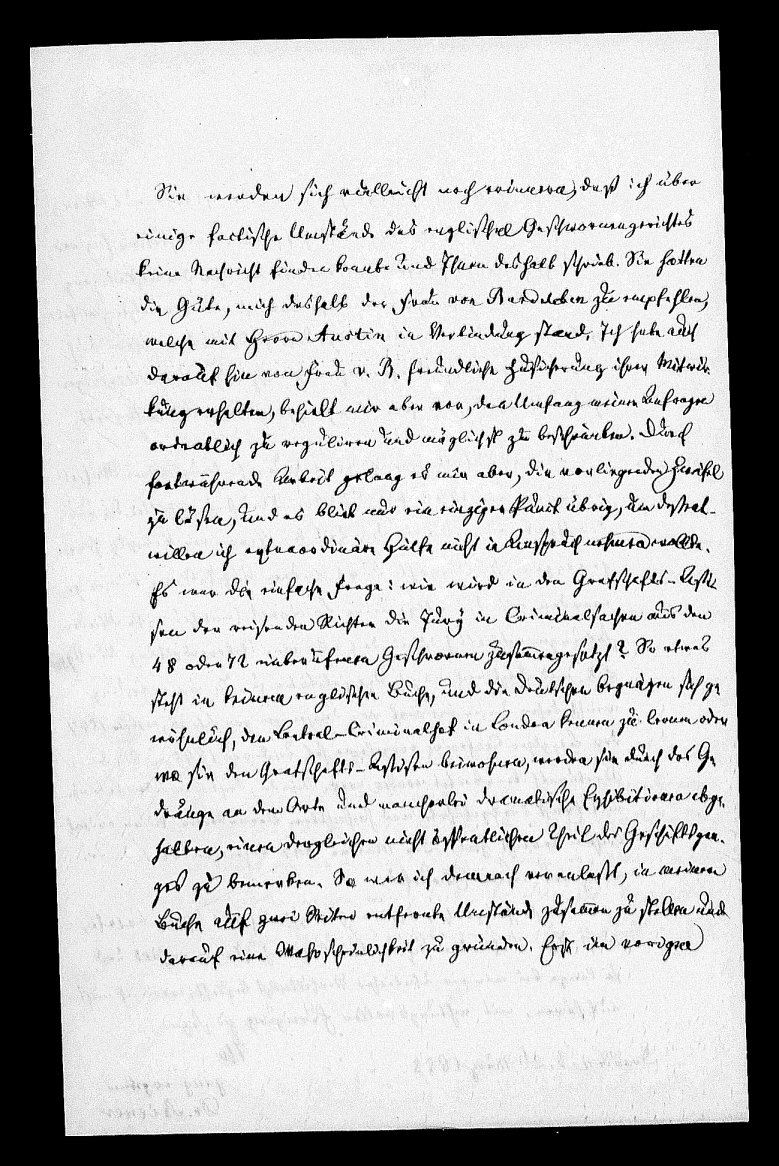 Sie werden sich vielleicht noch erinnern, daß ich über
einige factische Umstände des englischen Geschwornengerichtes
keine Nachricht finden konnte und Ihnen deshalb schrieb. Sie hatten
die Güte, mich deshalb der Frau von Bardeleben zu empfehlen,
welche mit Herrn Austin in Verbindung stand. Ich habe auch
darauf hin von Frau v. B. freundliche Zusicherung ihrer Mitwir-
kung erhalten, behielt mir aber vor, den Umfang meiner Anfragen
ordentlich zu reguliren und möglichst zu beschränken. Durch
fortwährende Arbeit gelang es mir aber, die vorliegenden Zweifel
zu lösen, und es blieb nur ein einziger Punct übrig, um dessent-
willen ich extraordinäre Hülfe nicht in Anspruch nehmen wollte.
Es war die einfache Frage: wie wird in den Grafschafts-Assi-
sen der reisenden Richter die Jury in Criminalsachen aus den
48 oder 72 einberufenen Geschwornen zusammengesetzt? So etwas
steht in keinem englischen Buche, und die Deutschen begnügen sich ge
wöhnlich, den Central-Criminalhof in London kennen zu lernen oder
wo sie den Grafschafts-Assisen beiwohnen, werden sie durch das Ge
dränge an dem Orte und mancherlei dramatische Exhibitionen abge-
halten, einen dergleichen nicht öffentlichen Theil des Geschäftsgan-
ges zu bemerken. So war ich demnach veranlaßt, in meinem
Buche auf zwei Seiten entfernte Umstände zusammen zu stellen und
darauf eine Wahrscheinlichkeit zu gründen. Erst im vorigen